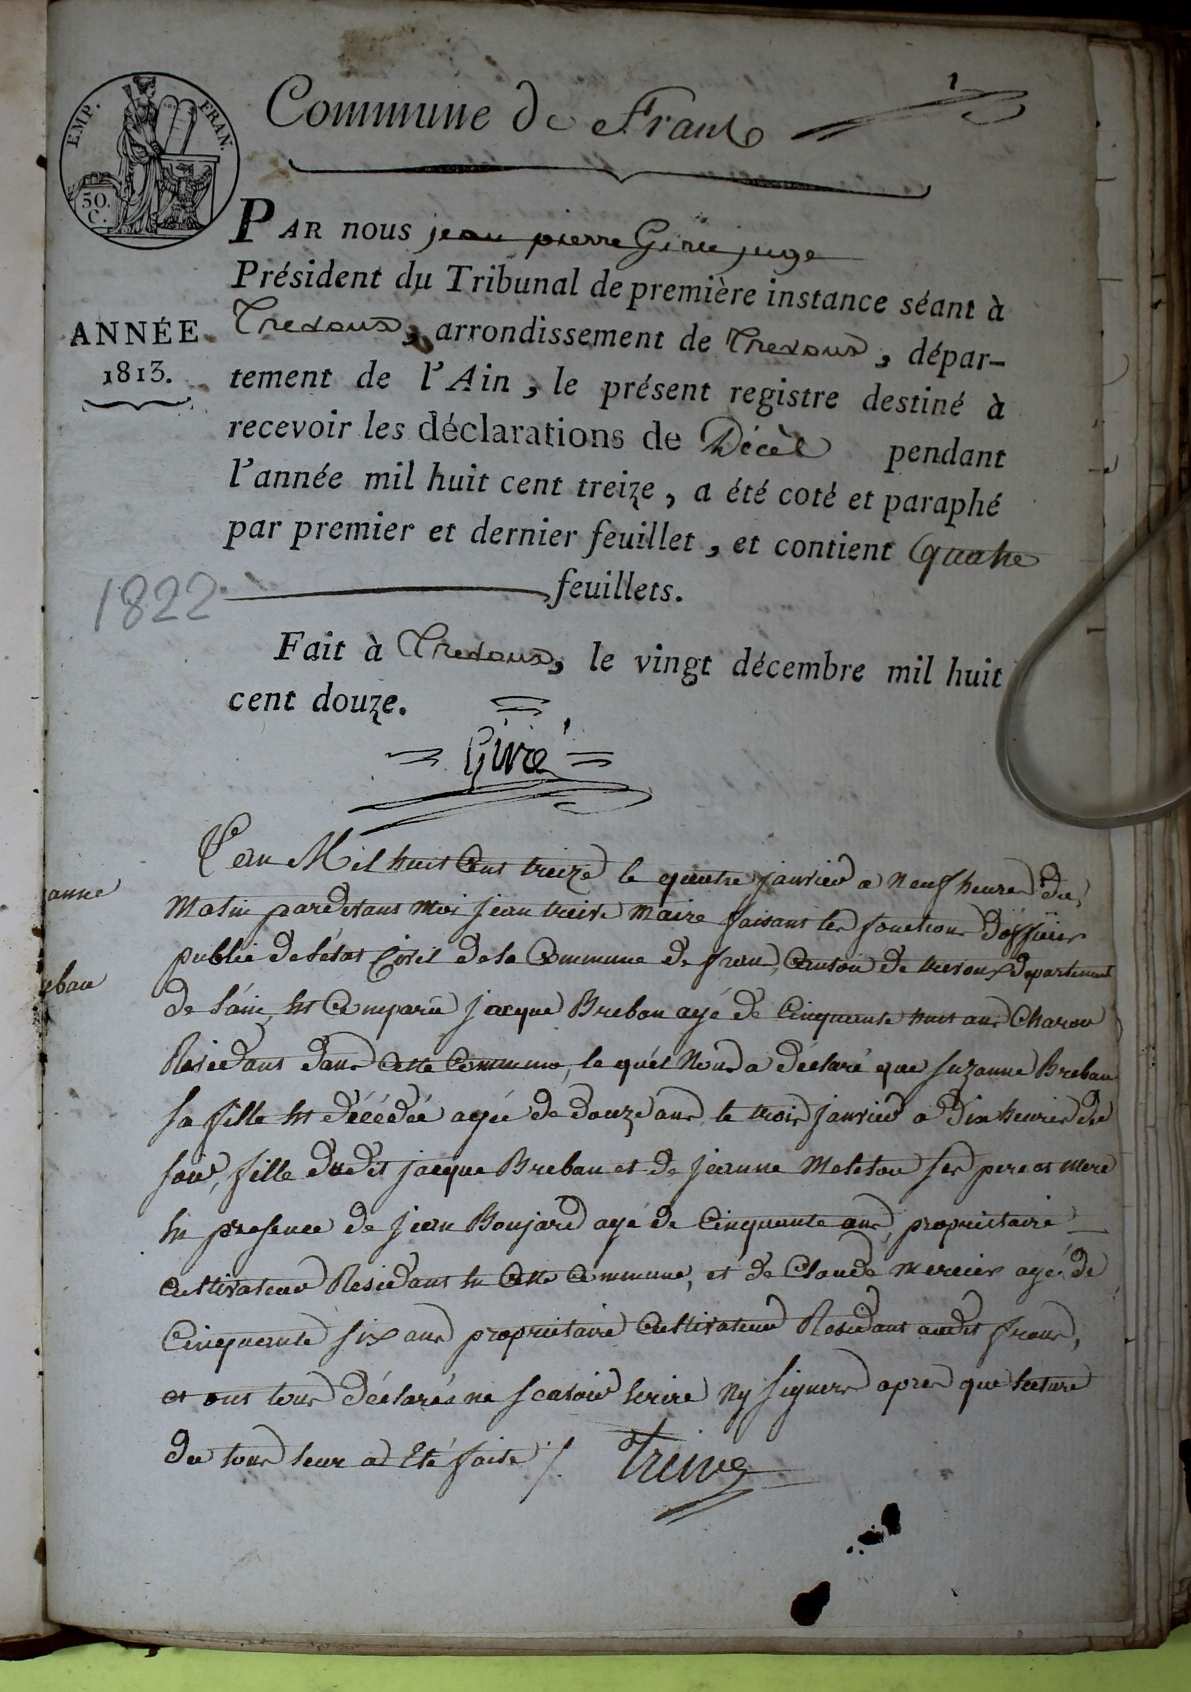 Commune de Frans
1
EMP. FRAN.
50.
C.
PAR nous jean pierre Givre juge
Président du Tribunal de première instance séant à
Trevoux, arrondissement de Trevoux, dépar-
ANNÉE
1813.
tement de l'Ain, le présent registre destiné à
recevoir les déclarations de Décès pendant
l'année mil huit cent treize, a été coté et paraphé
par premier et dernier feuillet, et contient quatre
feuillets.
1822
Fait à Trevoux, le vingt décembre mil huit
cent douze.
Givre
L'an Mil huit Cent treize le quatre janvier a neuf heures du
anne
Matin pardevant moi jean treive maire faisant les fonctions d'officier
public de l'état Civil de la Commune de frans, Canton de trevoux departement
eban
de l'ain, est Comparu jacque Breban agé de Cinquante huit ans Charon
Residant dans Cette Commune, le quel Nous a déclaré que suzanne Breban
sa fille est décédée agée de douze ans le trois janvier a dix heures du
soir, fille dudit jacque Breban et de jeanne ses pere et mere
en presence de jean Boujard agé de Cinquante ans, proprietaire
Cultivateur Residant en Cette Commune, et de Claude mercier agé de
Cinquante six ans proprietaire Cultivateur Residant audit frans,
et ont tous déclarés ne scavoir écrire ny signer apres que lecture
du tout leur a Eté faite /.
Treive